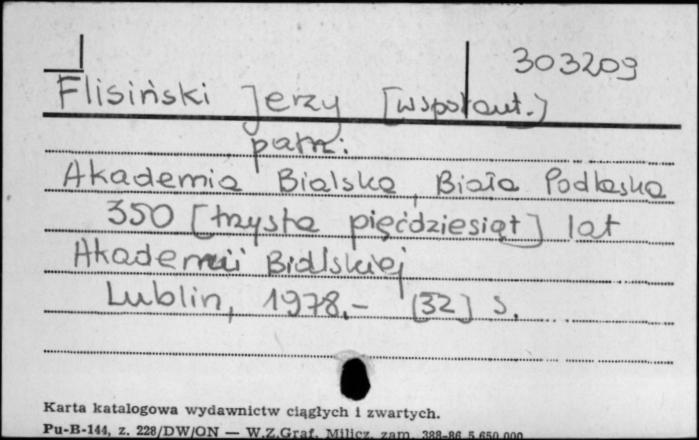 303209
Flisiński Jerzy [współaut.]
patrz:
Akademia Bialska, Biała Podlaska
350 [trzysta pięćdziesiąt] lat
Akademii Bialskiej
Lublin, 1978.- [32] s.
Karta katalogowa wydawnictw ciągłych i zwartych.
Pu-B-144, z. 228/DW/ON — W.Z.Graf. Milicz, zam. 388-86 5.650.000